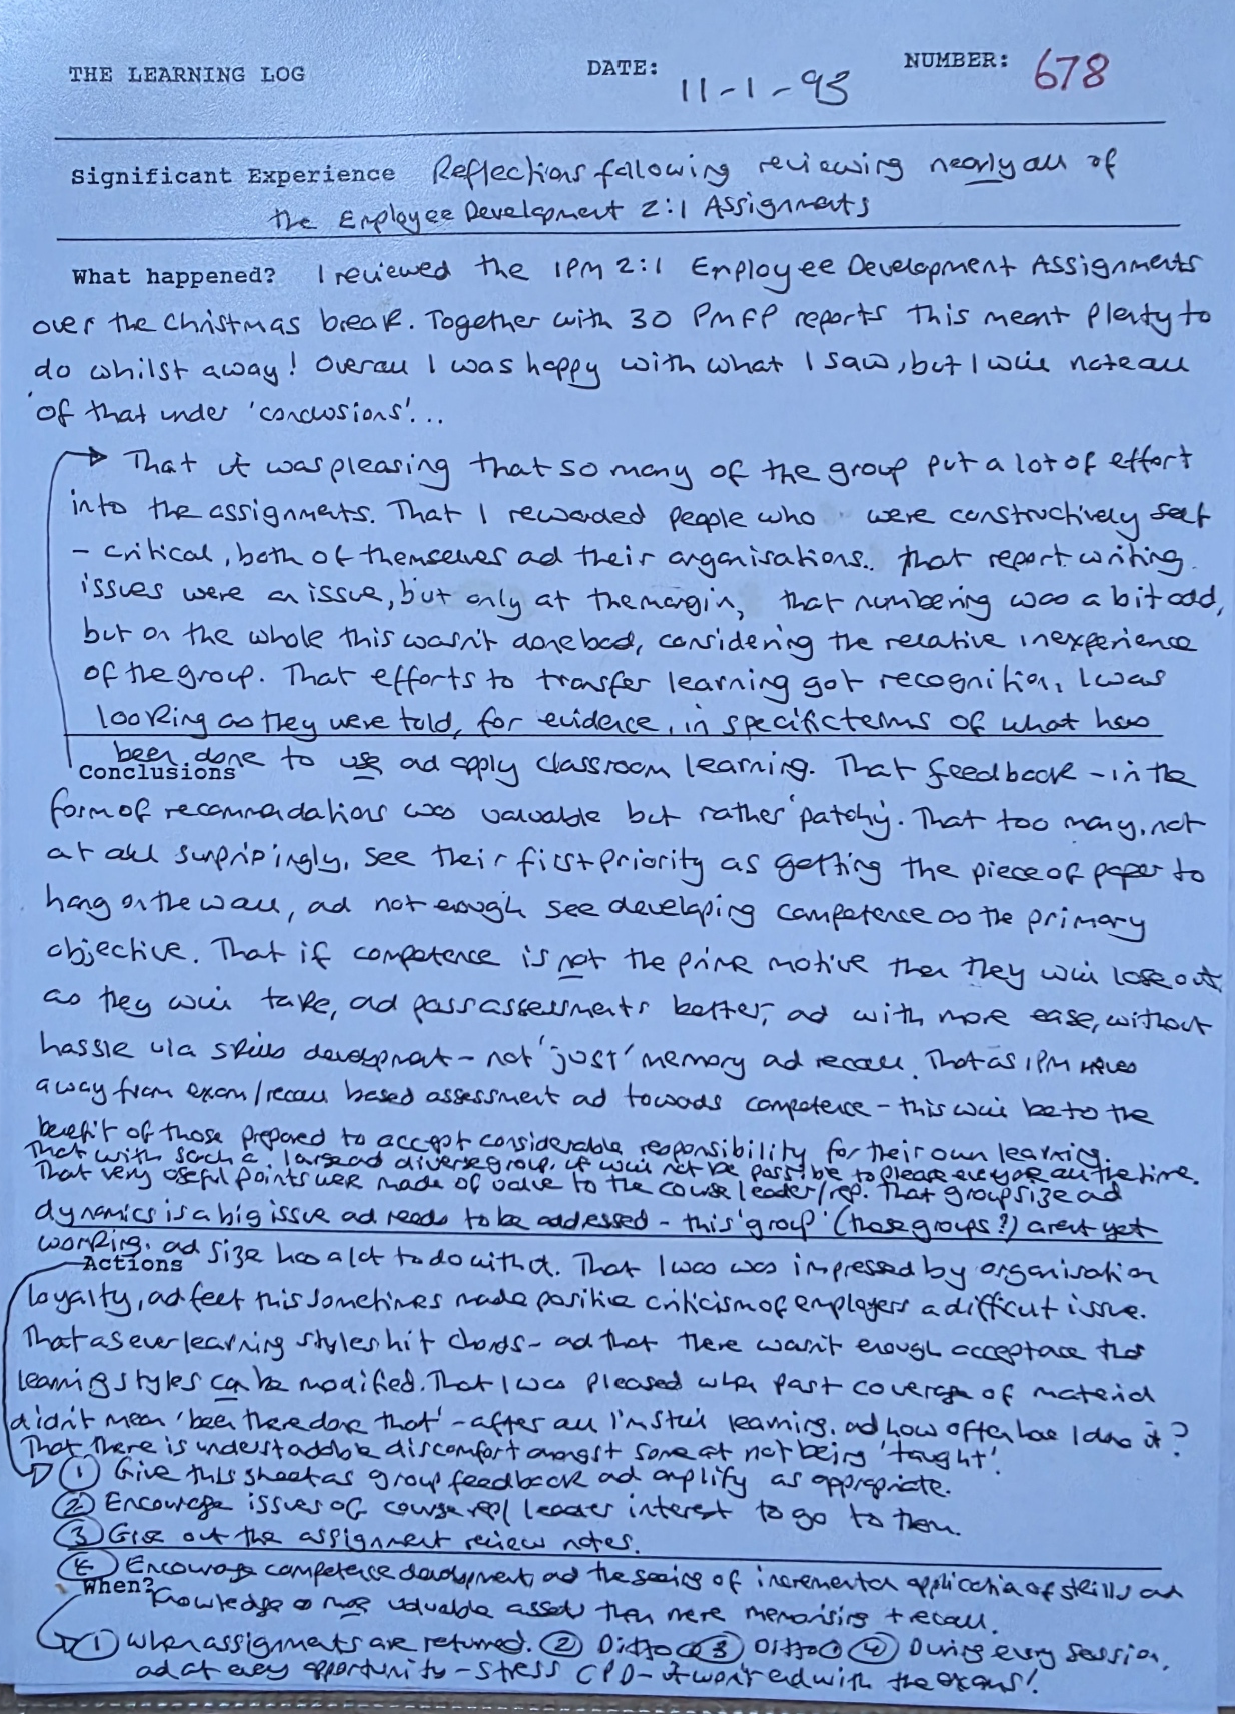 THE LEARNING LOG DATE: 11-1-93 NUMBER: 678
Significant Experience Reflections following reviewing nearly all of
the Employee Development 2:1 Assignments
What happened? I reviewed the IPM 2:1 Employee Development Assignments
over the Christmas break. Together with 30 PMFP reports this meant plenty to
do whilst away! Overall I was happy with what I saw, but I will note all
of that under 'conclusions'...
That it was pleasing that so many of the group put a lot of effort
into the assignments. That I rewarded people who were constructively self
- critical, both of themselves ad their organisations.. That report writing
issues were an issue, but only at the margin, that numbering was a bit odd,
but on the whole this wasn't done bad, considering the relative inexperience
of the group. That efforts to transfer learning got recognition, I was
looking as they were told, for evidence, in specific terms of what has
been done to use ad apply classroom learning. That feedback - in the
Conclusions
form of recommendations was valuable but rather 'patchy'. That too many, not
at all surprisingly, see their first priority as getting the piece of paper to
hang on the wall, ad not enough see developing competence as the primary
objective. That if competence is not the prime motive then they will lose out,
as they will take, ad pass assessments better, ad with more ease, without
hassle via skills development - not 'just' memory ad recall. That as IPM moves
away from exam/recall based assessment ad towards competence - this will be to the
benefit of those prepared to accept considerable responsibility for their own learning.
That with such a large ad diverse group, it will not be possible to please everyone all the time.
That very useful points were made of value to the course leader/rep. That group size ad
dynamics is a big issue ad needs to be addressed - this 'group' (those groups?) aren't yet
working. ad size has a lot to do with it. That I was was impressed by organisation
Actions
loyalty, ad feel this sometimes made positive criticism of employers a difficult issue.
That as ever learning styles hit chords - ad that there wasn't enough acceptance that
learning styles can be modified. That I was pleased when past coverage of material
didn't mean 'been there done that' - after all I'm still learning. ad how often have I done it?
That there is understandable discomfort amongst some at not being 'taught'.
① Give this sheet as group feedback ad amplify as appropriate.
② Encourage issues of course rep/leader interest to go to them.
③ Give out the assignment review notes.
④ Encourage competence development, ad the seeing of incremental application of skills ad
When?
knowledge as more valuable assets than mere memorising + recall.
① When assignments are returned. ② Ditto ① ③ Ditto ① ④ During every session,
ad at every opportunity - stress CPD - it won't end with the exams!